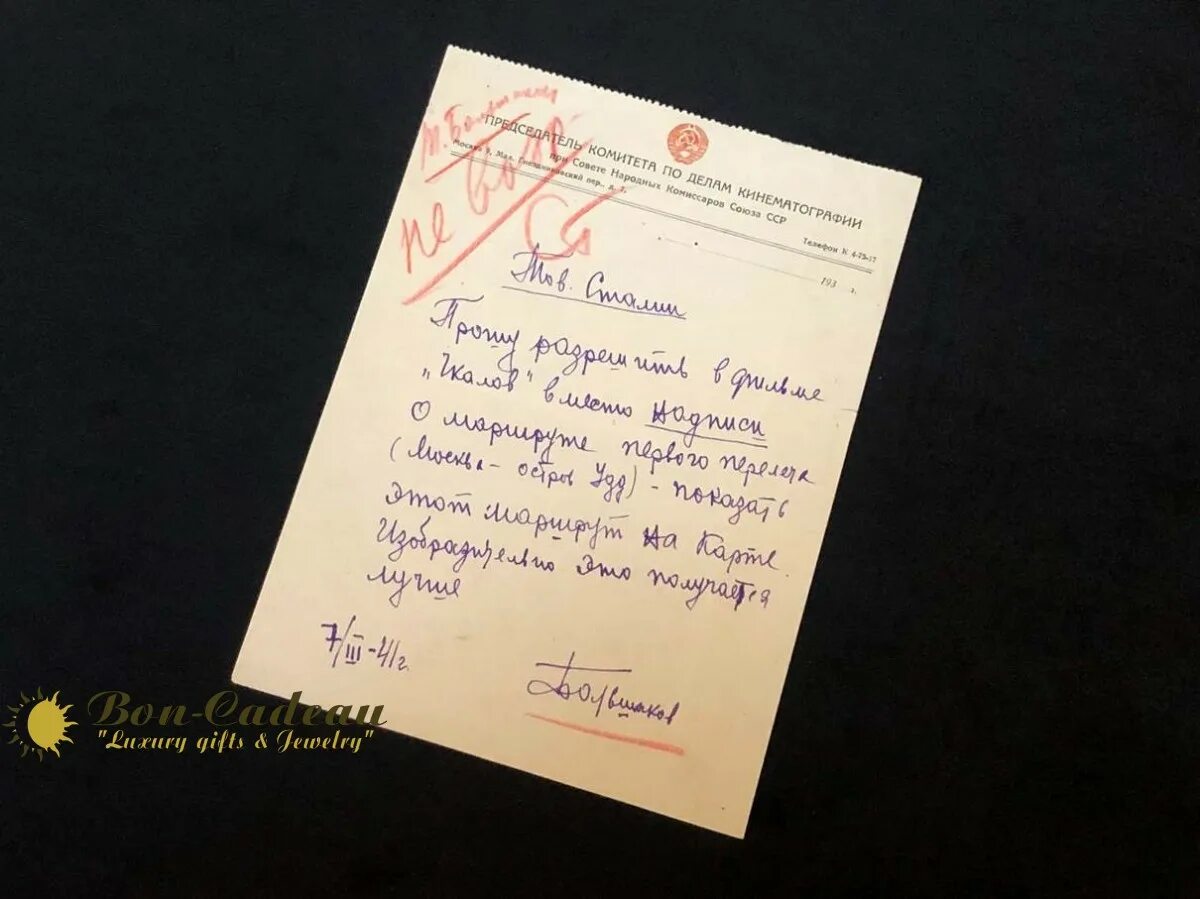 т. Большаков
ПРЕДСЕДАТЕЛЬ КОМИТЕТА ПО ДЕЛАМ КИНЕМАТОГРАФИИ
при Совете Народных Комиссаров Союза ССР
Москва 9, Мал. Гнездниковский пер., д. 7.
Телефон К 4-75-17
не
193 г.
Тов. Сталин
Прошу разрешить в фильме
„Чкалов" вместо надписи
О маршруте первого перелета
(Москва – остров Удд) – показать
этот маршрут на карте.
Изобразительно это получается
лучше
7/III-41г.
Большаков
Bon-Cadeau
"Luxury gifts & Jewelry"